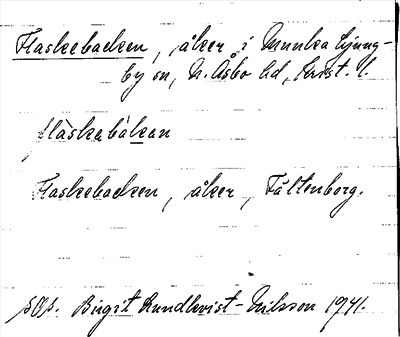 Flaskebacken, åker i Munka Ljung-
by sn, N. Åsbo hd, Krist. l.
flàskabákan
Flaskebacken, åker, Fältenborg.
Birgit Rundkvist-Nilsson 1941.